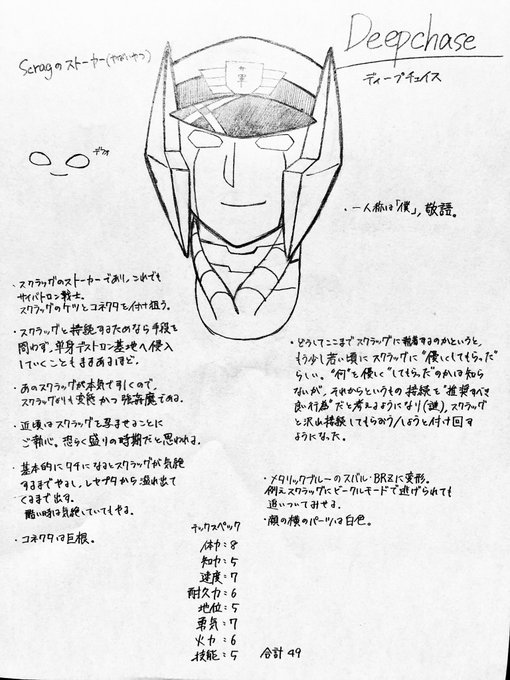 Deepchase
ディープチェイス
Scragのストーカー(やばいやつ)
デフォ
・一人称は「僕」,敬語。
・スクラッグのストーカーであり,これでも
サイバトロン戦士。
スクラッグのケツとコネクタを付け狙う。
・スクラッグと接続するためなら手段を
問わず,単身デストロン基地へ侵入
していくこともままあるほど。
・あのスクラッグが本気で引くので,
スクラッグよりも変態かつ強姦魔である。
・近頃はスクラッグを孕ませることに
ご執心。恐らく盛りの時期だと思われる。
・基本的にタチになるとスクラッグが気絶
するまでヤるし,レセプタから溢れ出て
くるまで出す。
酷い時は気絶していてもヤる。
・コネクタは巨根。
・どうしてここまでスクラッグに執着するのかというと,
もう少し若い頃にスクラッグに"優しくしてもらった"
らしい。"何"を優しく"してもらった"のかは知ら
ないが,それからというもの接続を"推奨すべき
良い行為"だと考えるようになり(謎),スクラッグ
と沢山接続してもらおう/しようと付け回す
ようになった。
・メタリックブルーのスバル・BRZに変形。
例えスクラッグにビークルモードで逃げられても
追いついてみせる。
・顔の横のパーツは白色。
テックスペック
体力:8
知力:5
速度:7
耐久力:6
地位:5
勇気:7
火力:6
技能:5 合計49